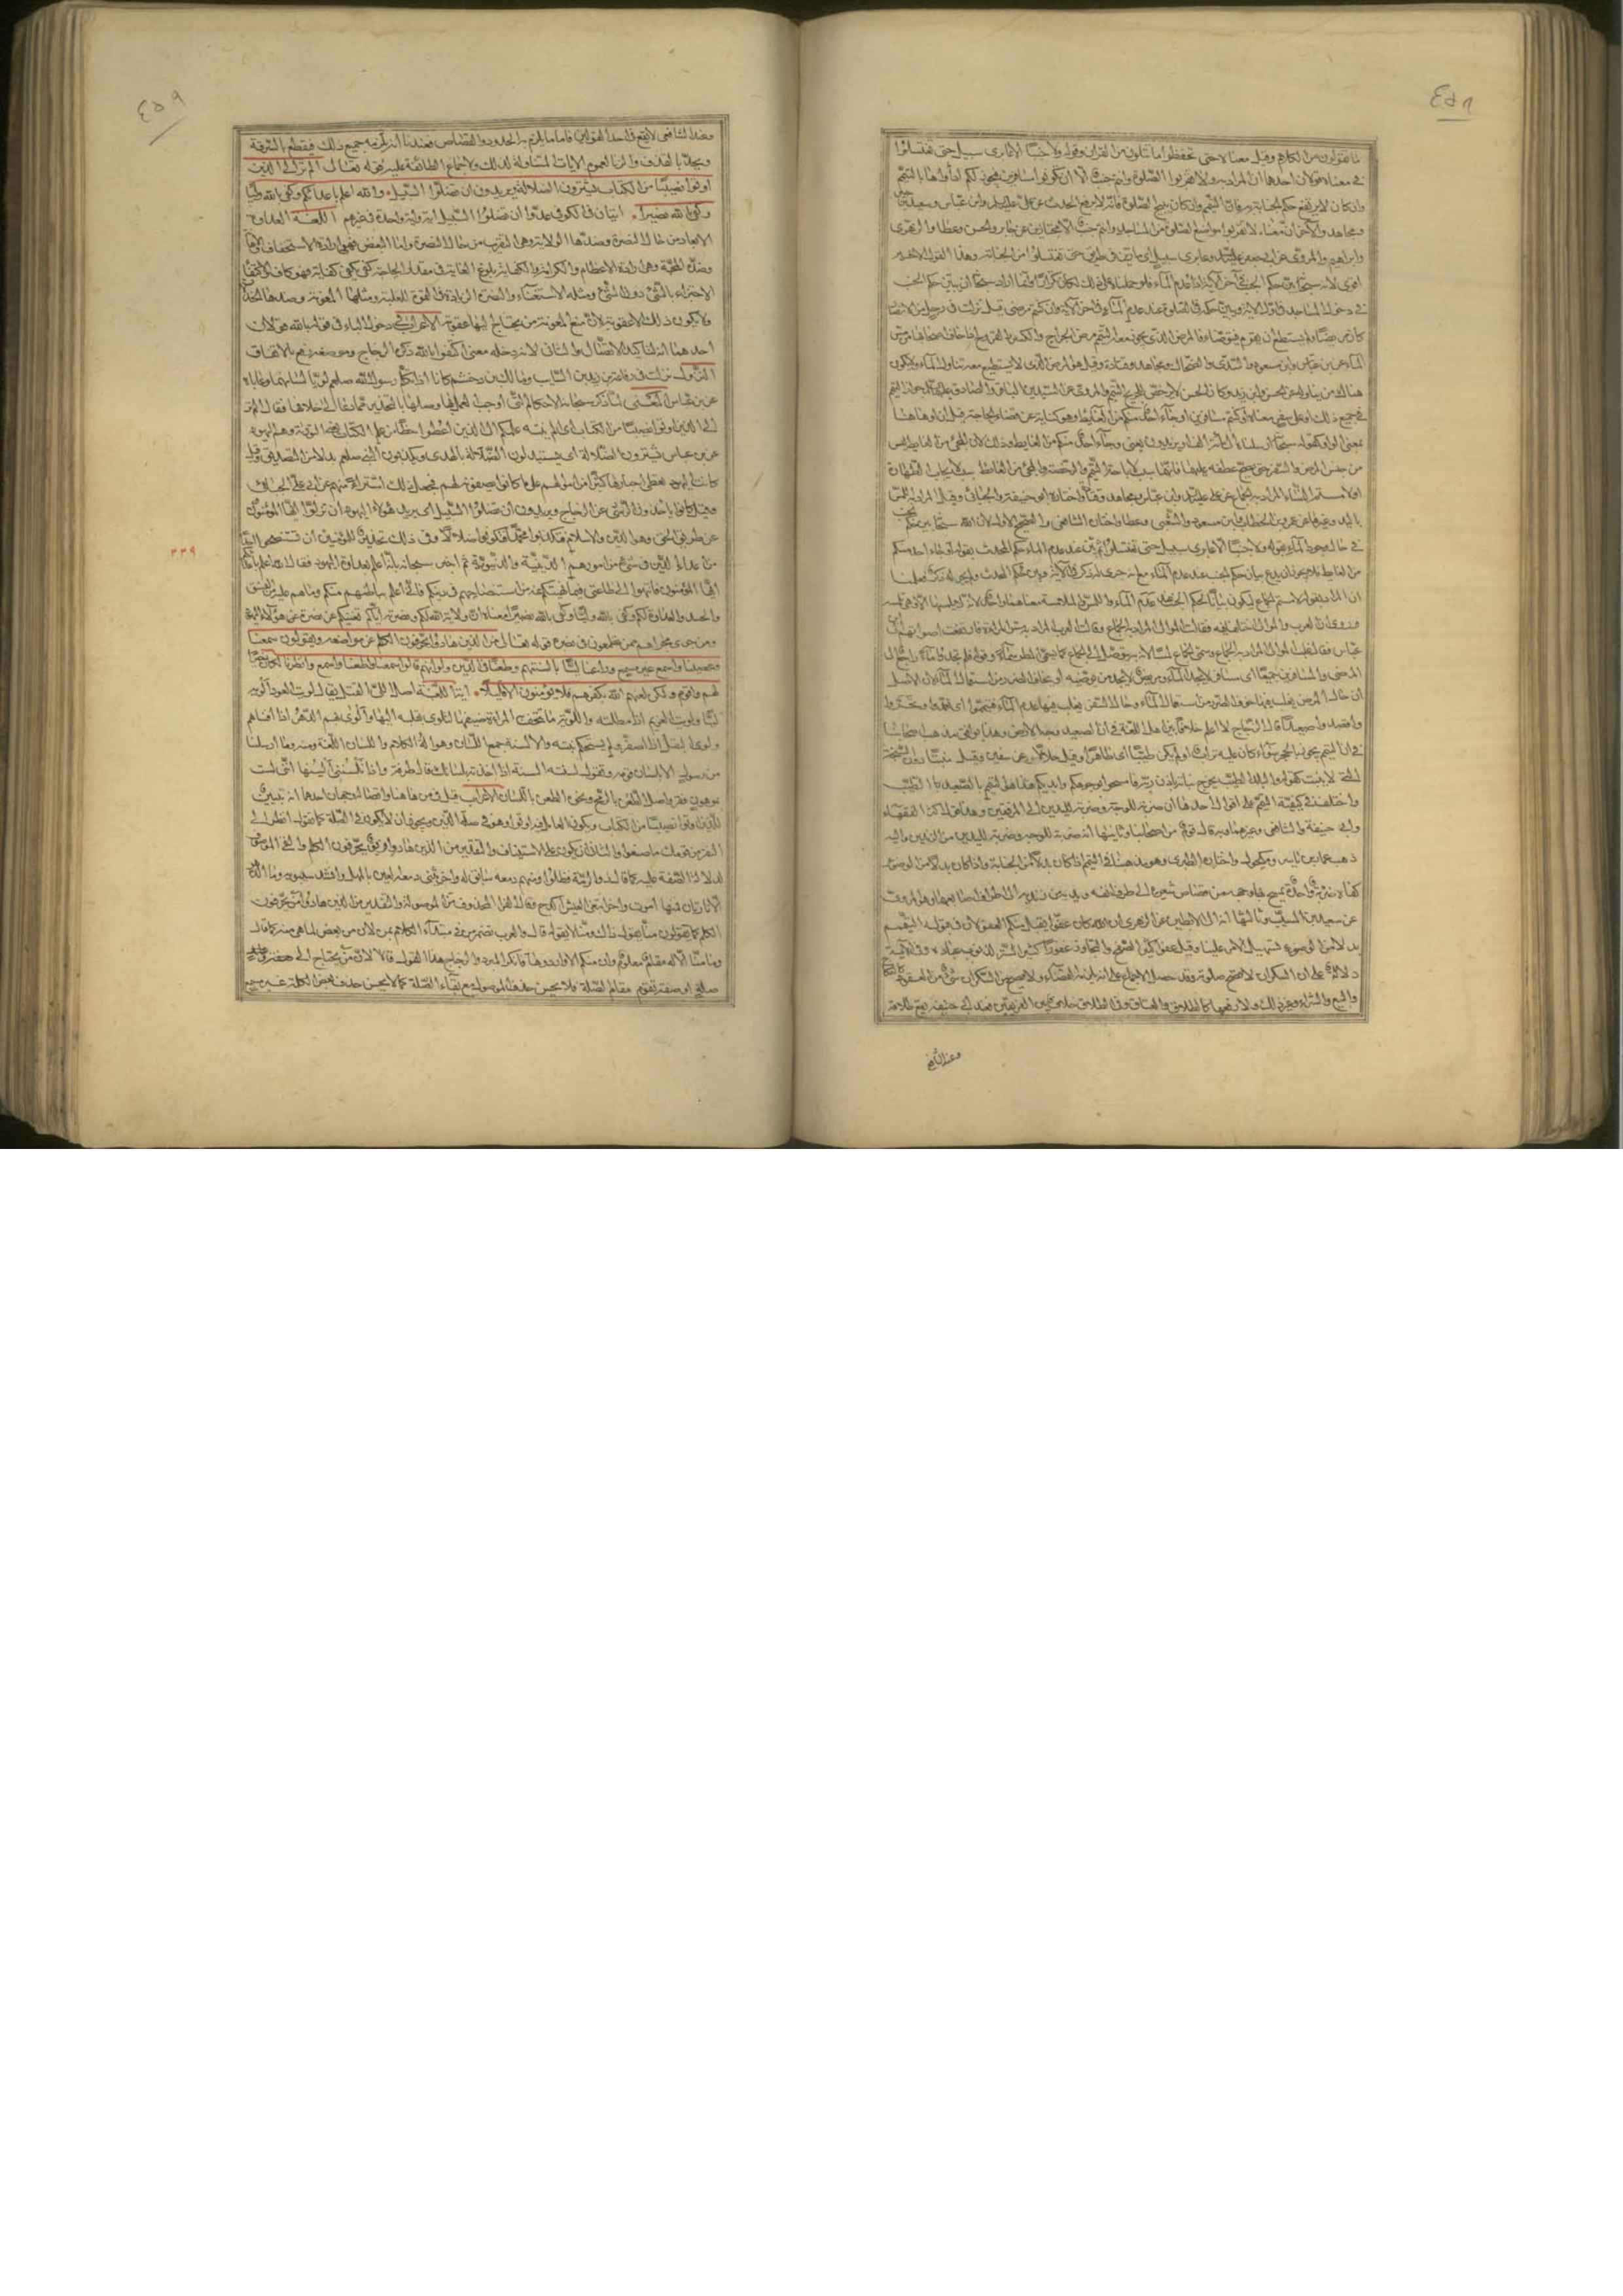 ٤٥٨
ما تقولون من الكلام وقيل معناه حتى تحفظوا ما تتلون من القران وقوله ولا جنبا الا عابرى سبيل حتى تغتسلوا
في معناه قولان احدهما ان المراد به ولا تقربوا الصلوة وانتم جنب الا ان تكونوا مسافرين فيجوز لكم اداؤها بالتيمم
وان كان لا يرتفع حكم الجنابة فان التيمم وان كان يبيح الصلوة فانه لا يرفع الحدث عن على عليه السلم وابن عباس وسعيد بن جبير
ومجاهد والاخر ان معناه لا تقربوا مواضع الصلوة من المساجد وانتم جنب الا مجتازين عن جابر والحسن وعطا والزهرى
وابراهيم والمروى عن ابى جعفر عليه السلم وعابرى سبيل اى مارين في طريق حتى تغتسلوا من الجنابة وهذا القول الاخير
اقوى لانه سبحانه بين حكم الجنب في آخر الآية اذا عدم الماء فلو حملناه على ذلك لكان تكرارا وانما اراد سبحانه ان يبين حكم الجنب
في دخول المساجد في اول الاية ويبين حكمه في الصلوة عند عدم الماء في آخر الآية وان كنتم مرضى قيل نزلت في رجل من الانصار
كان مريضا ولم يستطع ان يقوم فيتوضا فالمرض الذى يجوز معه التيمم مرض الجراح والكسر والقروح اذا خاف اصحابها من مس
الماء عن ابن عباس وابن مسعود والسدى والضحاك ومجاهد وقتادة وقيل هو المرض الذى لا يستطيع معه تناول الماء ولا يكون
هناك من يناوله عن الحسن وابن زيد وكان الحسن لا يرخص للجريح التيمم والمروى عن السيدين الباقر والصادق عليهما السلم جواز التيمم
في جميع ذلك او على سفر معناه او كنتم مسافرين او جاء احد منكم من الغائط وهو كناية عن قضاء الحاجة قيل ان او هاهنا
بمعنى الواو كقوله سبحانه وارسلناه الى مائة الف او يزيدون يعنى وجاء احد منكم من الغائط وذلك لان المجئ من الغايط ليس
من جنس المرض والسفر حتى يصح عطفه عليهما فانهما سبب لاباحة التيمم والرخصة والمجئ من الغائط سبب لايجاب الطهارة
او لامستم النساء المراد به الجماع عن على عليه السلم وابن عباس ومجاهد وقتادة واختاره ابو حنيفة والجبائى وقيل المراد به اللمس
باليد وغيرها عن عمر بن الخطاب وابن مسعود والشعبى وعطا واختاره الشافعى والصحيح الاول لان الله سبحانه بين حكم الجنب
في حال وجود الماء بقوله ولا جنبا الا عابرى سبيل حتى تغتسلوا ثم بين عند عدم الماء حكم المحدث بقوله او جاء احد منكم
من الغائط فلا يجوز ان يدع بيان حكم الجنب عند عدم الماء مع انه جرى له ذكر في الآية ويبين حكم المحدث ولم يجر له ذكر فعلمنا
ان المراد بقوله او لامستم الجماع ليكون بيانا لحكم الجنب عند عدم الماء واللمس والملامسة معناهما واحد لانه لا يلمسها الا وهى تلمسه
وروى ان العرب والموالى اختلفوا فيه فقالت الموالى المراد به الجماع وقالت العرب المراد به مس المراة فارتفعت اصواتهم الى ابن
عباس فقال غلب الموالى المراد به الجماع وسمى الجماع لمسا لان به يتوصل الى الجماع كما يسمى المطر سماء وقوله فلم تجدوا ماء راجع الى
المرضى والمسافرين جميعا اى مسافر لا يجد الماء ومريض لا يجد من يوضيه او يخاف الضرر من استعمال الماء لان الاصل
ان حال المرض يغلب فيها خوف الضرر من استعمال الماء وحال السفر يغلب فيها عدم الماء فتيمموا اى تعمدوا وتحروا
واقصدوا صعيدا قال الزجاج لا اعلم خلافا بين اهل اللغة في ان الصعيد وجه الارض وهذا يوافق مذهب اصحابنا
في ان التيمم يجوز بالحجر سواء كان عليه تراب او لم يكن طيبا اى طاهرا وقيل حلالا عن سفين وقيل منبتا دون السبخة
التى لا تنبت كقوله والبلد الطيب يخرج نباته باذن ربه فامسحوا بوجوهكم وايديكم هذا هو التيمم بالصعيد الطيب
واختلف في كيفية التيمم على اقوال احدها انه ضربة للوجه وضربة لليدين الى المرفقين وهو قول اكثر الفقهاء
وابى حنيفة والشافعى وغيرهما وبه قال قوم من اصحابنا وثانيها انه ضربة للوجه وضربة لليدين من الزندين واليه
ذهب عمار بن ياسر ومكحول واختاره الطبرى وهو مذهبنا في التيمم اذا كان بدلا من الجنابة واذا كان بدلا من الوضوء
عن سعيد بن المسيب وثالثها انه الى الابطين عن الزهرى ان الله كان عفوا يقبل منكم العفو لان في قوله التيمم
بدلا من الوضوء تسهيل الامر علينا وقيل عفوا كثير الصفح والتجاوز غفورا كثير الستر لذنوب عباده وفي الآية
دلالة على ان السكران لا تصح صلوته وقد حصل الاجماع على انه يلزمه القضاء ولا يصح من السكران شئ من العقود كالنكاح
والبيع والشراء وغير ذلك ولا رفعها كالطلاق والعتاق وفي الطلاق خلاف بين الفريقين فعند ابى حنيفة يقع طلاقه
وعند الشافعى
٤٥٩
وعند الشافعى لا يقع في احد القولين فاما ما يلزم به الحدود والقصاص فعندنا انه يلزمه جميع ذلك فيقطع بالسرقة
ويحد بالقذف والزنا لعموم الايات المتناولة لذلك ولاجماع الطائفة عليه قوله تعالى الم تر الى الذين
اوتوا نصيبا من الكتاب يشترون الضلالة ويريدون ان تضلوا السبيل والله اعلم باعدائكم وكفى بالله وليا
وكفى بالله نصيرا ايتان في الكوفى عدوا ان تضلوا السبيل اية واية واحدة في غيرهم اللغة العداوة
الابعاد من حال النصرة وضدها الولاية وهى التقرب من حال النصرة واما البغض فهو ارادة الاستخفاف والاهانة
وضده المحبة وهى ارادة الاعظام والكرامة والكفاية بلوغ الغاية في مقدار الحاجة كفى يكفى كفاية فهو كاف والاكتفاء
الاجتزاء بالشئ دون الشئ ومثله الاستغناء والنصرة الزيادة في القوة للغلبة ومثلها المعونة وضدها الخذلان
ولا يكون ذلك الا عقوبة لان منع المعونة من يحتاج اليها عقوبة الاعراب في دخول الباء في قوله بالله قولان
احدهما انه لتاكيد الاتصال والثانى لانه دخله معنى اكتفوا بالله ذكره الزجاج وموضعه رفع بالاتفاق
النزول نزلت في رفاعة بن زيد بن السايب ومالك بن دخشم كانا اذا تكلم رسول الله صلعم لويا لسانهما وعاباه
عن ابن عباس المعنى لما ذكر سبحانه الاحكام التى اوجب العمل بها وصلها بالتحذير مما دعا الى خلافها فقال الم تر
الى الذين اوتوا نصيبا من الكتاب اى الم ينته علمك الى الذين اعطوا حظا من علم الكتاب يعنى التورية وهم اليهود
عن ابن عباس يشترون الضلالة اى يستبدلون الضلالة بالهدى ويكذبون النبى صلعم بدلا من التصديق وقيل
كانت اليهود يعطى احبارها كثيرا من اموالهم على ما كانوا يصفونه لهم فجعل ذلك اشتراء منهم عن ابى على الجبائى
وقيل كانوا ياخذون الرشى عن الزجاج ويريدون ان تضلوا السبيل اى يريد هؤلاء اليهود ان تزلوا ايها المؤمنون
عن طريق الحق وهو الدين والاسلام فتكذبوا بمحمد فتكونوا ضلالا وفي ذلك تحذير للمؤمنين ان يستنصحوا احدا
من اعداء الدين في شئ من امورهم الدينية والدنيوية ثم اخبر سبحانه بانه اعلم بعداوة اليهود فقال والله اعلم باعدائكم
ايها المؤمنون فانتهوا الى طاعتى فيما نهيتكم عنه من استنصاحهم في دينكم فانى اعلم بباطنهم منكم وما هم عليه من الغش
والحسد والعداوة لكم وكفى بالله وليا وكفى بالله نصيرا معناه ان ولاية الله لكم ونصرته اياكم تغنيكم عن نصرة هؤلاء اليهود
ومن جرى مجراهم ممن تطمعون في نصرته قوله تعالى من الذين هادوا يحرفون الكلم عن مواضعه ويقولون سمعنا
وعصينا واسمع غير مسمع وراعنا ليا بالسنتهم وطعنا في الدين ولو انهم قالوا سمعنا واطعنا واسمع وانظرنا لكان خيرا
لهم واقوم ولكن لعنهم الله بكفرهم فلا يؤمنون الا قليلا اية اللغة اصل اللى الفتل يقال لويت العود الويه
ليا ولويت الغريم اذا مطلته واللوية ما تتحف المراة ضيفها
من رسول الا بلسان قومه وتقول لسنته السنه اذا اخذته بلسانك قال طرفة واذا تلسننى السنها اننى لست
بموهون فقر واصل الطعن بالرمح ونحوه الطعن باللسان الاعراب قيل في من هاهنا واتصاله وجهان احدهما انه تبيين
للذين اوتوا نصيبا من الكتاب ويكون العامل فيه اوتوا وهو في صلة الذين ويجوز ان لا يكون في الصلة كما تقول انظر الى
النفر من قومك ما صنعوا والثانى ان يكون على الاستيناف والتقدير من الذين هادوا فريق يحرفون الكلم والقى الموصوف
لدلالة الصفة عليه كما قال ذو الرمة فظلوا ومنهم دمعه سابق له واخر يثنى دمعة العين بالمهل وانشد سيبويه وما الدهر
الا تارتان فمنها اموت واخرى ابتغى العيش اكدح وقال الفراء المحذوف من الموصولة والتقدير من الذين هادوا من يحرفون
الكلم كما يقولون منا يقول ذاك ومنا لا يقوله قال والعرب تضمر من في مبتداء الكلام بمن لان من بعض لما هى منه كما قال
وما منا الا له مقام معلوم وان منكم الا واردها وانكر المبرد والزجاج هذا القول قالا لان من يحتاج الى
صلة او صفة تقوم مقام الصلة فلا يحسن حذف الموصول مع بقاء الصلة كما لا يحسن حذف بعض الكلمة غير مسمع
٣٣٩